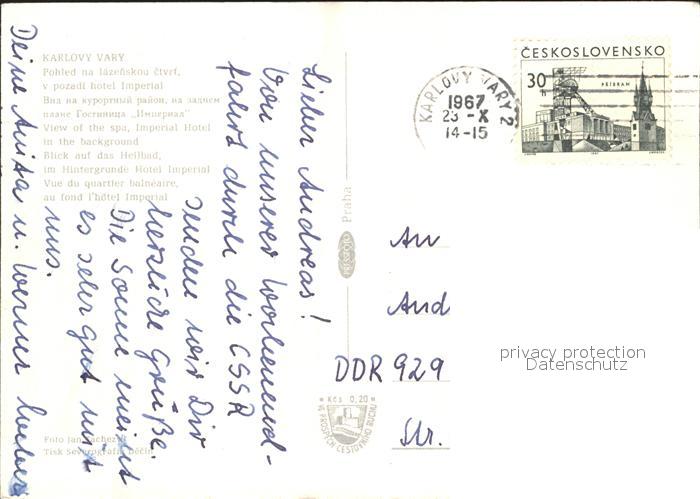 KARLOVY VARY
Pohled na lázeňskou čtvrť,
v pozadí hotel Imperial
Вид на курортный район, на заднем
плане Гостиница „Империал"
View of the spa, Imperial Hotel
in the background
Blick auf das Heilbad,
im Hintergrunde Hotel Imperial
Vue du quartier balnéaire,
au fond l'hôtel Imperial
Lieber Andreas!
Von unserer Wochenend-
fahrt durch die CSSR
senden wir Dir
herzliche Grüße.
Die Sonne meint
es sehr gut mit
uns.
Deine Anita u. Werner
Foto Jan
Tisk Severografia Děčín
Praha
PRESSFOTO
Kčs 0,20
VE PROSPĚCH CESTOVNÍHO RUCHU
KARLOVY VARY 2
1967
23 -X
14-15
ČESKOSLOVENSKO
30 h
PŘÍBRAM
An
And
DDR 929
Str.
privacy protection
Datenschutz